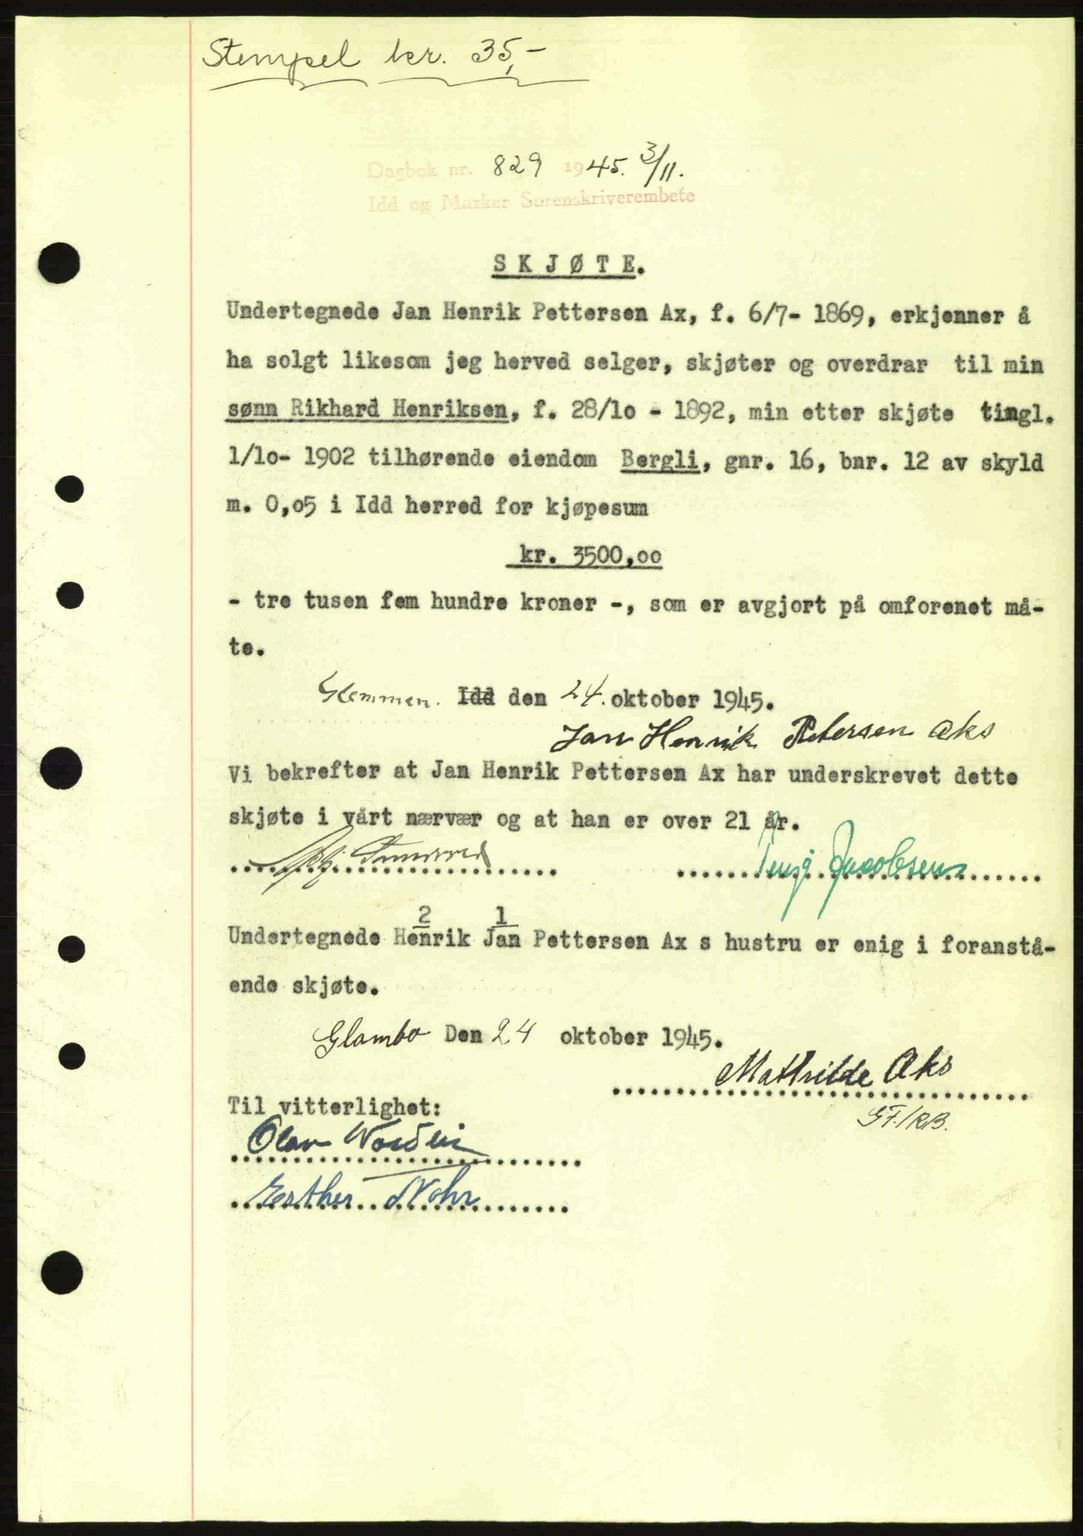 Stempel kr. 35,-
Dagbok nr. 829 1945. 3/11.
Idd og Marker Sorenskriverembete
SKJØTE.
Undertegnede Jan Henrik Pettersen Ax, f. 6/7- 1869, erkjenner å
ha solgt likesom jeg herved selger, skjøter og overdrar til min
sønn Rikhard Henriksen, f. 28/10 - 1892, min etter skjøte tingl.
1/10- 1902 tilhørende eiendom Bergli, gnr. 16, bnr. 12 av skyld
m. 0,05 i Idd herred for kjøpesum
kr. 3500,00
- tre tusen fem hundre kroner -, som er avgjort på omforenet må-
te.
Glemmen. Idd den 24. oktober 1945.
Jan Henrik Petersen Aks
Vi bekrefter at Jan Henrik Pettersen Ax har underskrevet dette
skjøte i vårt nærvær og at han er over 21 år.
Jacobsen
2 1
Undertegnede Henrik Jan Pettersen Ax s hustru er enig i foranstå-
ende skjøte.
Glombo Den 24 oktober 1945.
Mathilde Aks
Til vitterlighet:
Olav
Esther Nohr